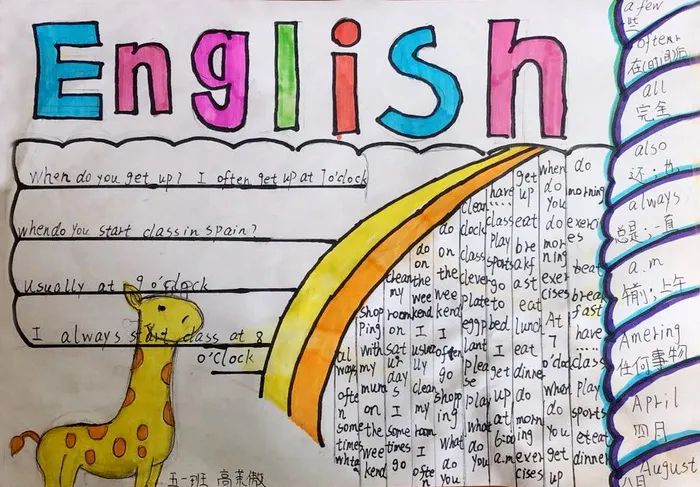 English
When do you get up? I often get up at 7 o'clock
when do you start class in spain?
usually at 9 o'clock
I always start class at 8
o'clock
always
often
sometimes
shopping with my mum on the weekend
clean my room on saturdays I sometimes go
do on the weekend I usually clean my room I often
do on the weekend I often go shopping What do you
clean clock class clever plate eggplant please play What do you
have
class play sports go to bed I get up at 6:00 a.m
get up eat breakfast eat lunch eat dinner do morning exercises
when do you do morning exercises At 7 o'clock when do you get up
do morning exercises eat breakfast have class play sports eat dinner
a few
些
often
在(时间)后
all
完全
also
还；也
always
总是；一直
a.m
上午
Amering
任何事物
April
四月
August
八月
五一班